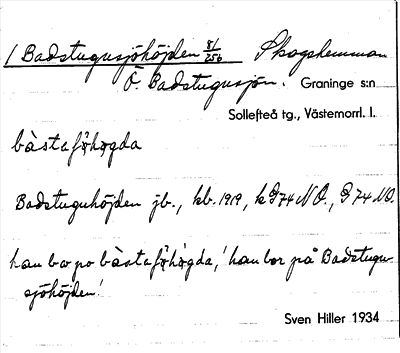 / Badstugusjöhöjden 81/256 Skogshemman
Ö. Badstugusjön. Graninge s:n
Sollefteå tg., Västernorrl. l.
bàstafo̯hø̀gda
Badstuguhöjden jb., kb. 1919, k G74 NO., G 74 NO.
han bor po bàstafo̯hø̀gda, 'han bor på Badstugu-
sjöhöjden'.
Sven Hiller 1934